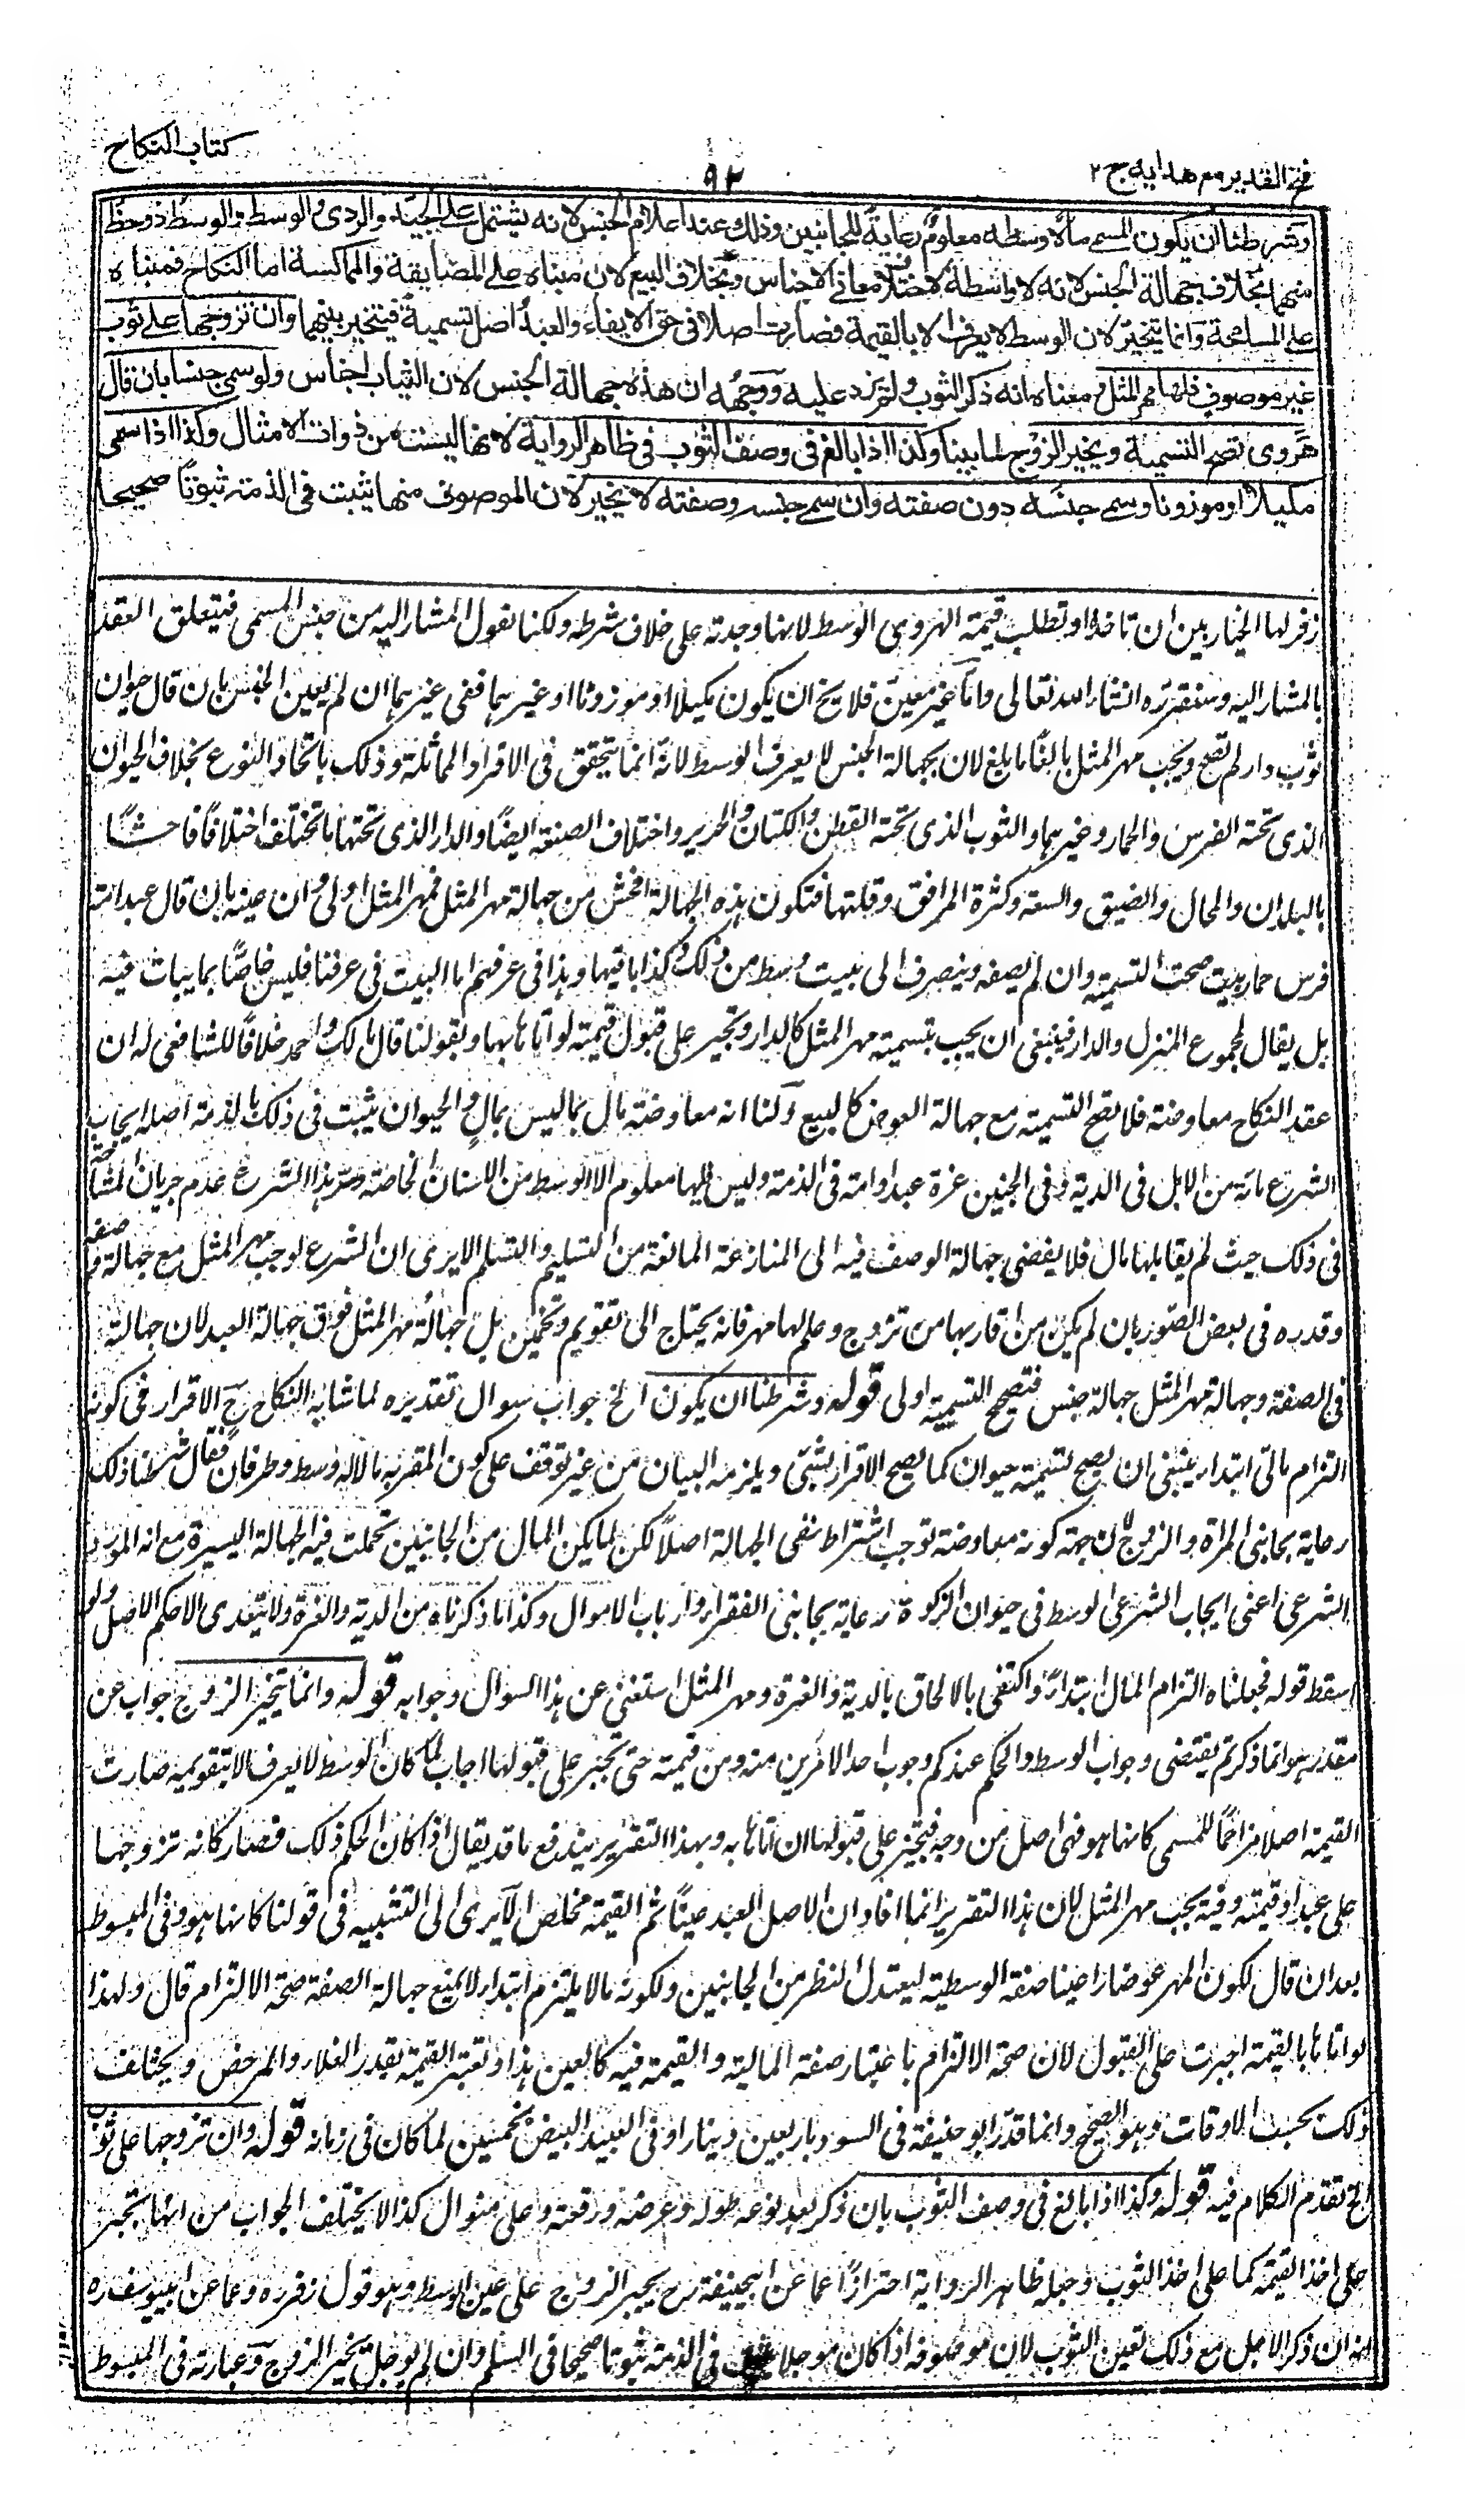 فتح القدیر مع هدایه ج ۲
۹۲
کتاب النکاح
وشرطنا ان یکون المسمی مالا وسطه معلوم رعایة للجانبین وذلك عند اعلام الجنس لانه یشتمل علی الجید والردی والوسط والوسط ذو حظ
منهما بخلاف جهالة الجنس لانه لا واسطة له لاختلاف معانی الاجناس وبخلاف البیع لان مبناه علی المضایقة والمماکسة اما النکاح فمبناه
علی المسامحة وانما یتخیر لان الوسط لا یعرف الا بالقیمة فصارت اصلا فی حق الایفاء والعبد اصل تسمیة فیتخیر بینهما وان تزوجها علی ثوب
غیر موصوف فلها مهر المثل ومعناه انه ذکر الثوب ولم یزد علیه ووجهه ان هذه جهالة الجنس لان الثیاب اجناس ولو سمی جنسا بان قال
هروی تصح التسمیة ویخیر الزوج لما بینا وکذا اذا بالغ فی وصف الثوب فی ظاهر الروایة لانها لیست من ذوات الامثال وکذا اذا سمی
مکیلا او موزونا وسمی جنسه دون صفته وان سمی جنسه وصفته لا یخیر لان الموصوف منهما یثبت فی الذمة ثبوتا صحیحا
زفر لها الخیار بین ان تاخذه او تطلب قیمته الهروی الوسط لانها وجدته علی خلاف شرطه ولکنا نقول المشار الیه من جنس المسمی فیتعلق العقد
بالمشار الیه وسنقرره انشاء الله تعالی واما غیر معین فلا یخ ان یکون مکیلا او موزونا او غیرهما ففی غیرهما ان لم یعین الجنس بان قال حیوان
ثوب دار لم تصح ویجب مهر المثل بالغا ما بلغ لان بجهالة الجنس لا یعرف الوسط لانه انما یتحقق فی الافراد المماثلة وذلک باتحاد النوع بخلاف الحیوان
الذی تحته الفرس والحمار وغیرهما والثوب الذی تحته القطن والکتان والحریر واختلاف الصنعة ایضا والدار الذی تحتها ما تختلف اختلافا فاحشا
بالبلدان والمحال والضیق والسعة وکثرة المرافق وقلتها فتکون هذه الجهالة افحش من جهالة مهر المثل فمهر المثل اولی وان عینه بان قال عبد امة
فرس حمار بیت صحت التسمیة وان لم یصفه وینصرف الی بیت وسط من ذلک وکذا باقیها وهذا فی عرفهم اما البیت فی عرفنا فلیس خاصا بما یبات فیه
بل یقال لمجموع المنزل والدار فینبغی ان یجب بتسمیته مهر المثل کالدار وتجبر علی قبول قیمته لو اتاها بها وبقولنا قال مالک واحمد خلافا للشافعی له ان
عقد النکاح معاوضة فلا تصح التسمیة مع جهالة العوض کالبیع ولنا انه معاوضة مال بما لیس بمال والحیوان یثبت فی ذلک بالذمة اصله ایجاب
الشرع مائة من الابل فی الدیة وفی الجنین غرة عبد او امة فی الذمة ولیس فیها معلوم الا الوسط من الاسنان الخاصة وسر هذا الشرع عدم جریان المشاحة
فی ذلک حیث لم یقابلها مال فلا یفضی جهالة الوصف فیه الی المنازعة المانعة من التسلیم والتسلم الا یری ان الشرع اوجب مهر المثل مع جهالة صفته
وقدره فی بعض الصور بان لم یکن من اقاربها من تزوج وعلم لها مهر فانه یحتاج الی تقویم وتخمین بل جهالة مهر المثل فوق جهالة العبد لان جهالته
فی الصفة وجهالة مهر المثل جهالة جنس فتصحیح التسمیة اولی قوله وشرطنا ان یکون الخ جواب سوال تقدیره لما شابه النکاح ح الاقرار فی کونه
التزام مالی ابتداء ینبغی ان یصح تسمیة حیوان کما یصح الاقرار بشیء ویلزمه البیان من غیر توقف علی کون المقر به ما لاله وسط وطرفان فقال شرطنا ذلک
رعایة بجانبی المراة والزوج لان جهة کونه معاوضة توجب اشتراط نفی الجهالة اصلا لکن لما یکن المال من الجانبین تحملت فیه الجهالة الیسیرة مع انه المورد
الشرعی اعنی ایجاب الشرعی الوسط فی حیوان الزکوة رعایة بجانبی الفقراء وارباب الاموال وکذا ما ذکرناه من الدیة والغرة ولا یتعدی الا حکم الاصل ولو
اسقط قوله فجعلناه التزام المال ابتداء واکتفی بالالحاق بالدیة والغرة ومهر المثل استغنی عن هذا السوال وجوابه قوله وانما یتخیر الزوج جواب عن
مقدر هو انما ذکرتم یقتضی وجوب الوسط والحکم عندکم وجوب احد الامرین منه ومن قیمته حتی تجبر علی قبولها اجاب لما کان الوسط لا یعرف الا بتقویمه صارت
القیمة اصلا مزاحما للمسمی کانها هو فهی اصل من وجه فتجبر علی قبولها ان اتاها به وبهذا التقریر یندفع ما قد یقال اذا کان الحکم ذلک فصار کانه تزوجها
علی عبد او قیمته وفیه یجب مهر المثل لان هذا التقریر انما افاد ان الاصل العبد عینا ثم القیمة مخلص الا یری الی التشبیه فی قولنا کانها هو وفی المبسوط
بعد ان قال لکون المهر عوضا راعینا صفة الوسطیة لیعتدل النظر من الجانبین ولکونه مالا یلتزم ابتداء لا یمنع جهالة الصفة صحة الالتزام قال ولهذا
لو اتاها بالقیمة اجبرت علی القبول لان صحة الالتزام باعتبار صفة المالیة والقیمة فیه کالعین هذا وتعتبر القیمة بقدر الغلاء والرخص ویختلف
ذلک بحسب الاوقات وهو الصحیح وانما قدر ابو حنیفة فی السود باربعین دینارا وفی العبید البیض بخمسین لما کان فی زمانه قوله وان تزوجها علی ثوب
الخ تقدم الکلام فیه قوله وکذا اذا بالغ فی وصف الثوب بان ذکر بعد نوعه طوله وعرضه ورقعته وعلی منوال کذا لا یختلف الجواب من انها تجبر
علی اخذ القیمة کما علی اخذ الثوب وجعله ظاهر الروایة احترازا عما عن ابیحنیفة رح یجبر الزوج علی عین الوسط وهو قول زفر ره وعما عن ابییوسف ره
انه ان ذکر الاجل مع ذلک تعین الثوب لان موصوفه اذا کان موجلا فی الذمة ثبوتا صحیحا فی السلم وان لم یوجل تخیر الزوج وعبارته فی المبسوط